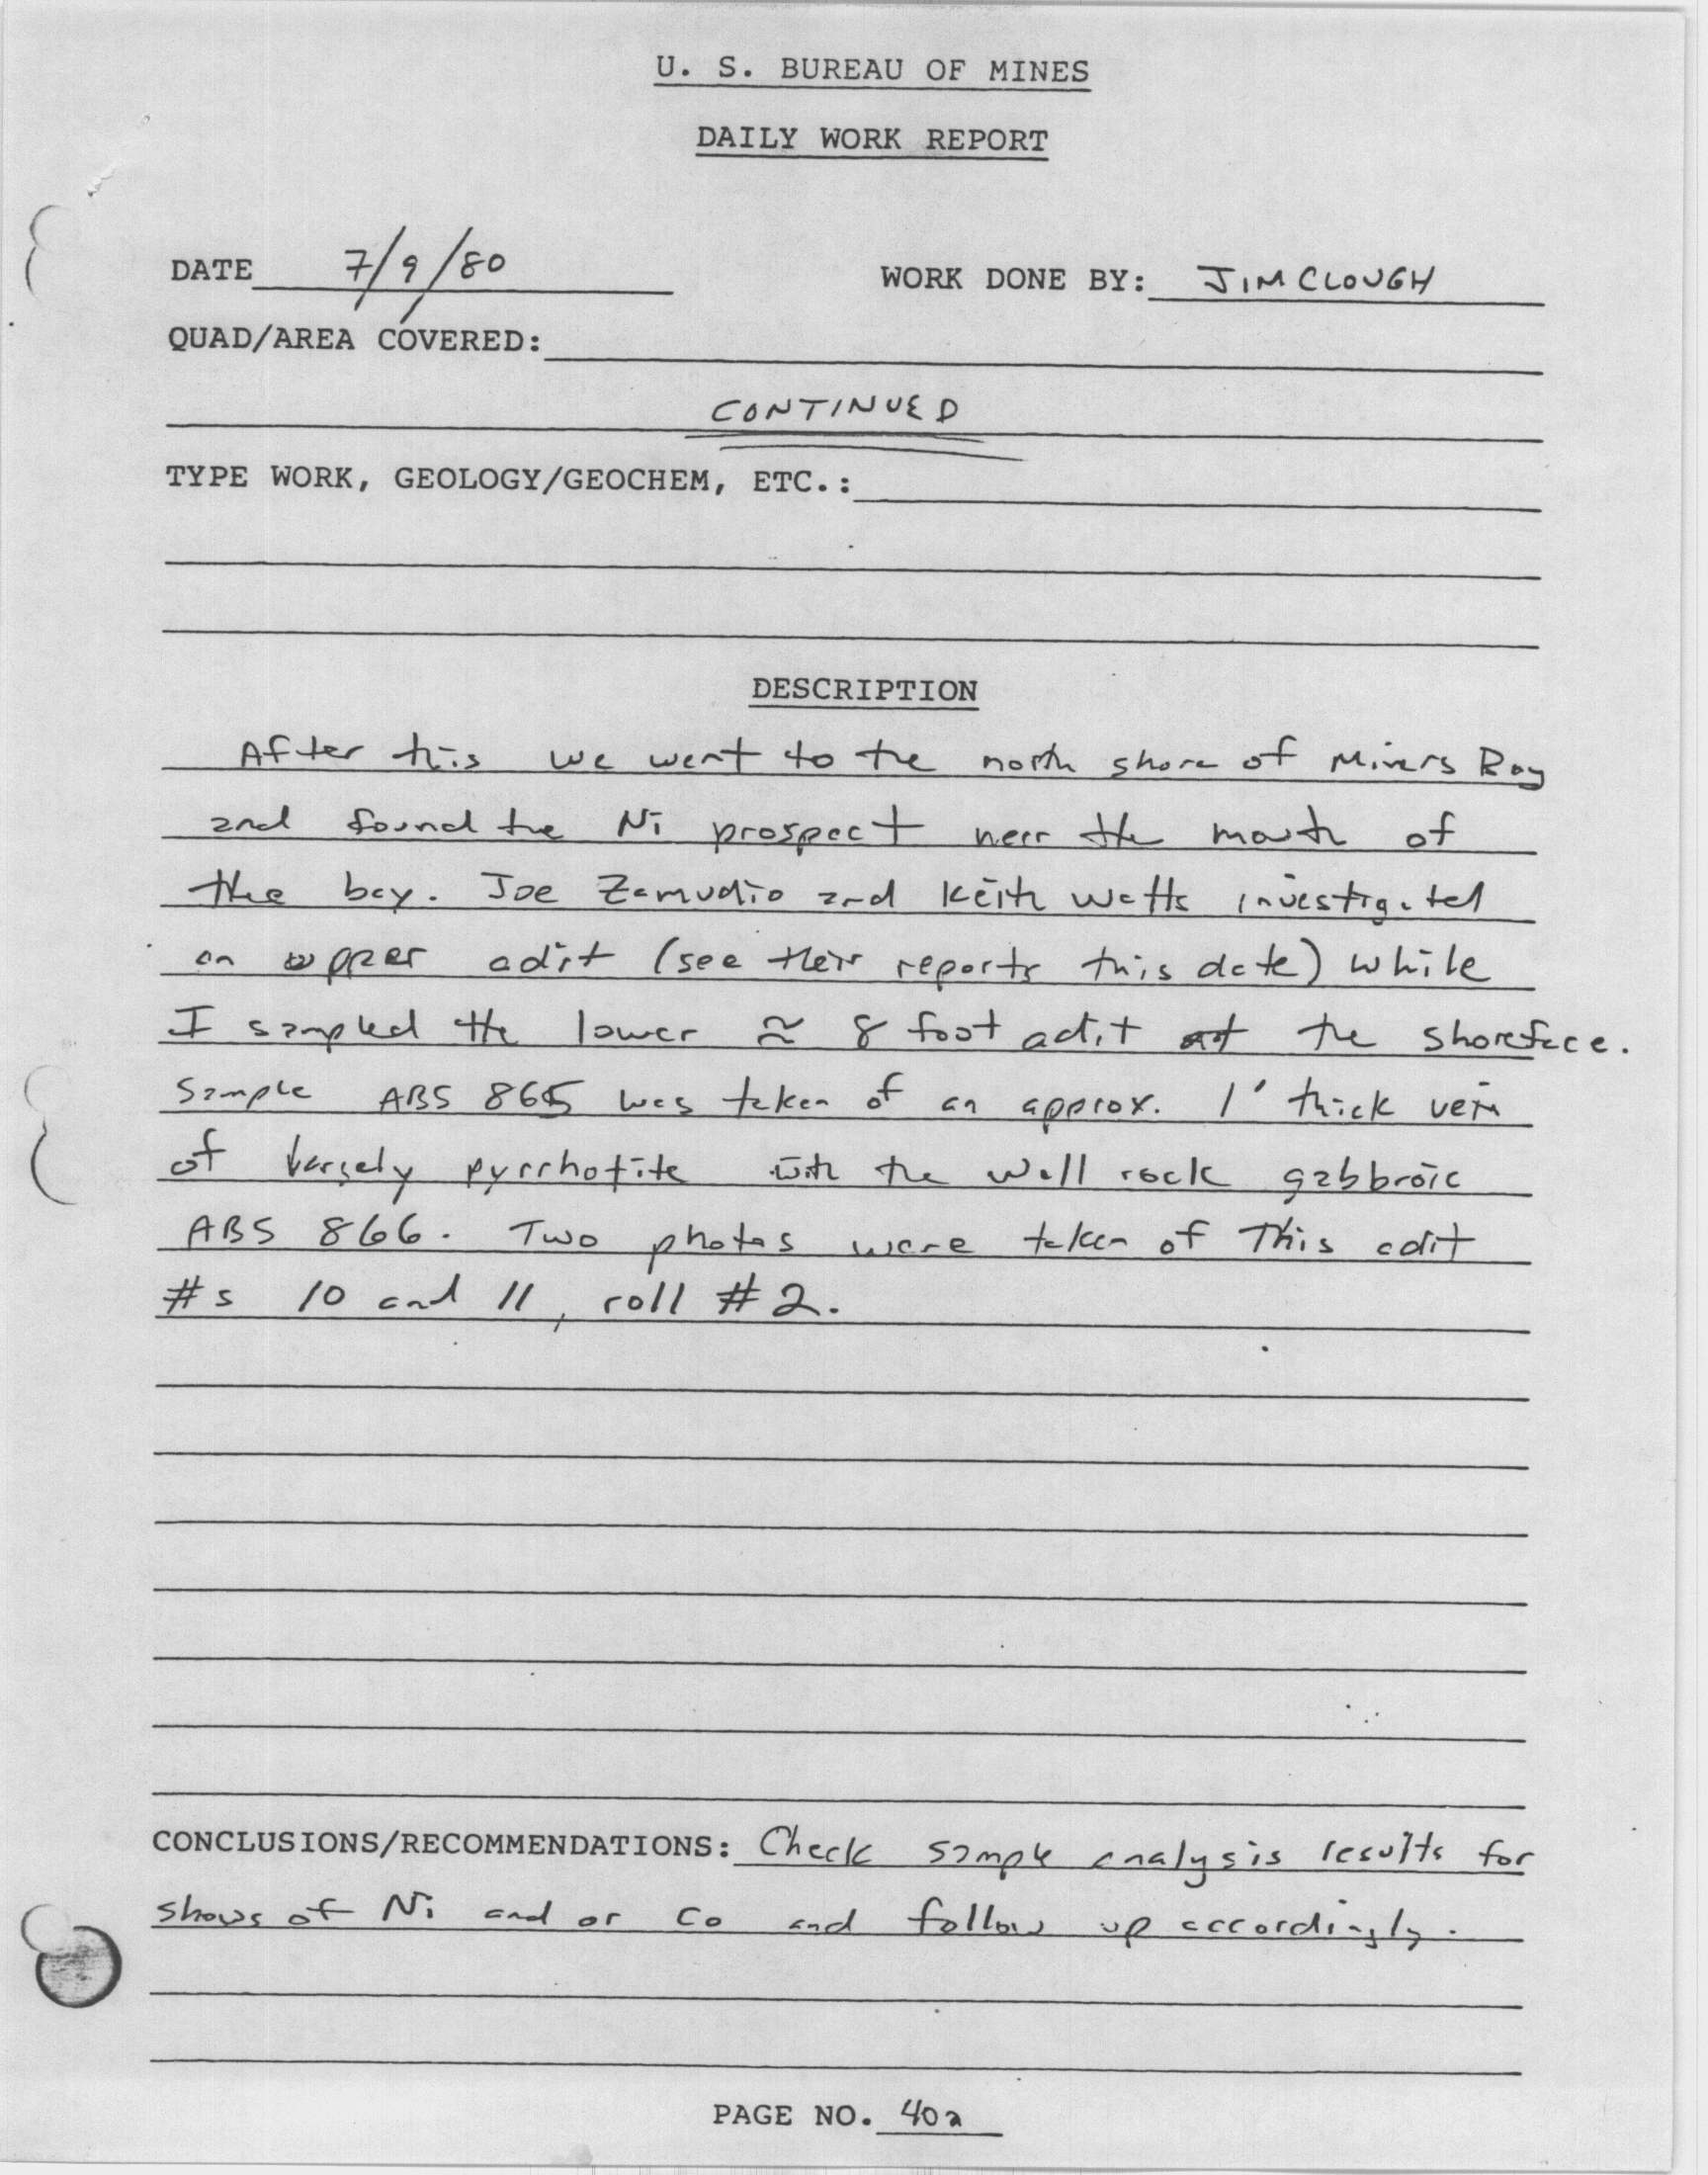 U. S. BUREAU OF MINES
DAILY WORK REPORT
DATE 7/9/80 WORK DONE BY: JIM CLOUGH
QUAD/AREA COVERED:
CONTINUED
TYPE WORK, GEOLOGY/GEOCHEM, ETC.:
DESCRIPTION
After this we went to the north shore of Miners Bay
and found the Ni prospect near the mouth of
the bay. Joe Zamudio and Keith Watts investigated
an upper adit (see their reports this date) while
I sampled the lower ≈ 8 foot adit at the shoreface.
Sample ABS 865 was taken of an approx. 1' thick vein
of largely pyrrhotite with the wall rock gabbroic
ABS 866. Two photos were taken of This adit
#s 10 and 11, roll #2.
CONCLUSIONS/RECOMMENDATIONS: Check sample analysis results for
shows of Ni and or Co and follow up accordingly.
PAGE NO. 40a